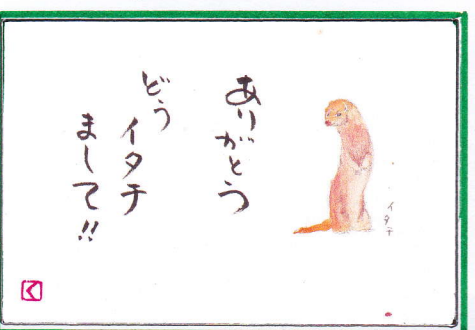 ありがとう
どう
イタチ
まして!!
イタチ
く